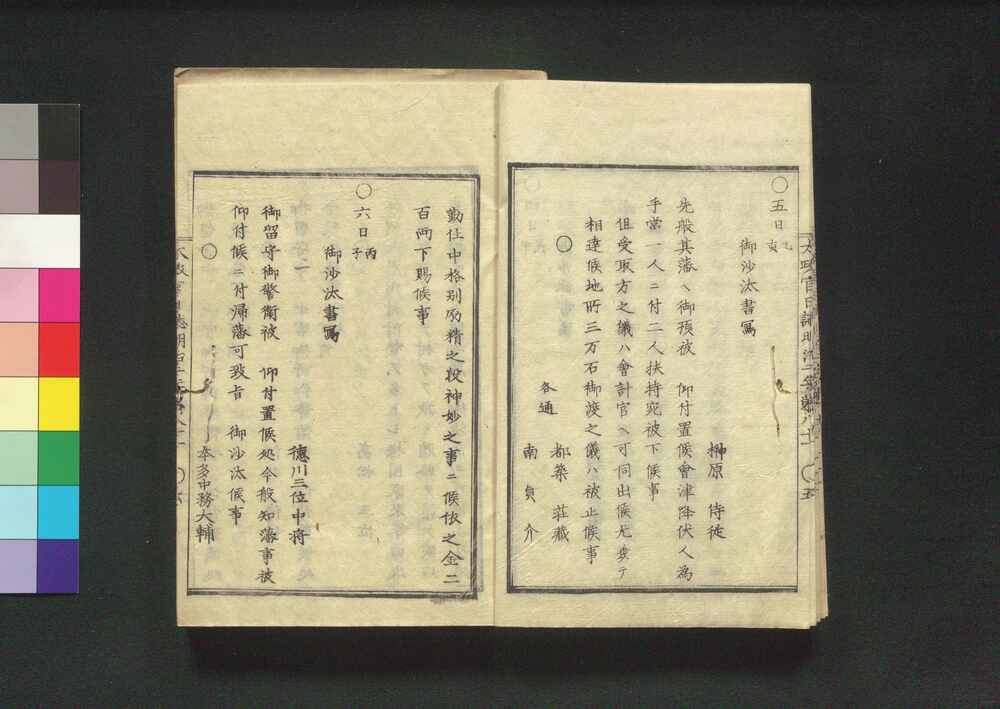 ○五日 乙亥
御沙汰書写
榊原 侍従
先般其藩ヘ御預被 仰付置候會津降伏人為
手當一人ニ付二人扶持宛被下候事
但受取方之議ハ會計官ヘ可伺出候尤兼テ
相達候地所三万石御渡之儀ハ被止候事
○
各通
都築 荘蔵
南 貞介
勤仕中格別励精之段神妙之事ニ候依之金二
百両下賜候事
○六日 丙子
御沙汰書写
徳川三位中将
御留守御警衛被 仰付置候処今般知藩事被
仰付候ニ付帰藩可致旨 御沙汰候事
○
本多中務大輔